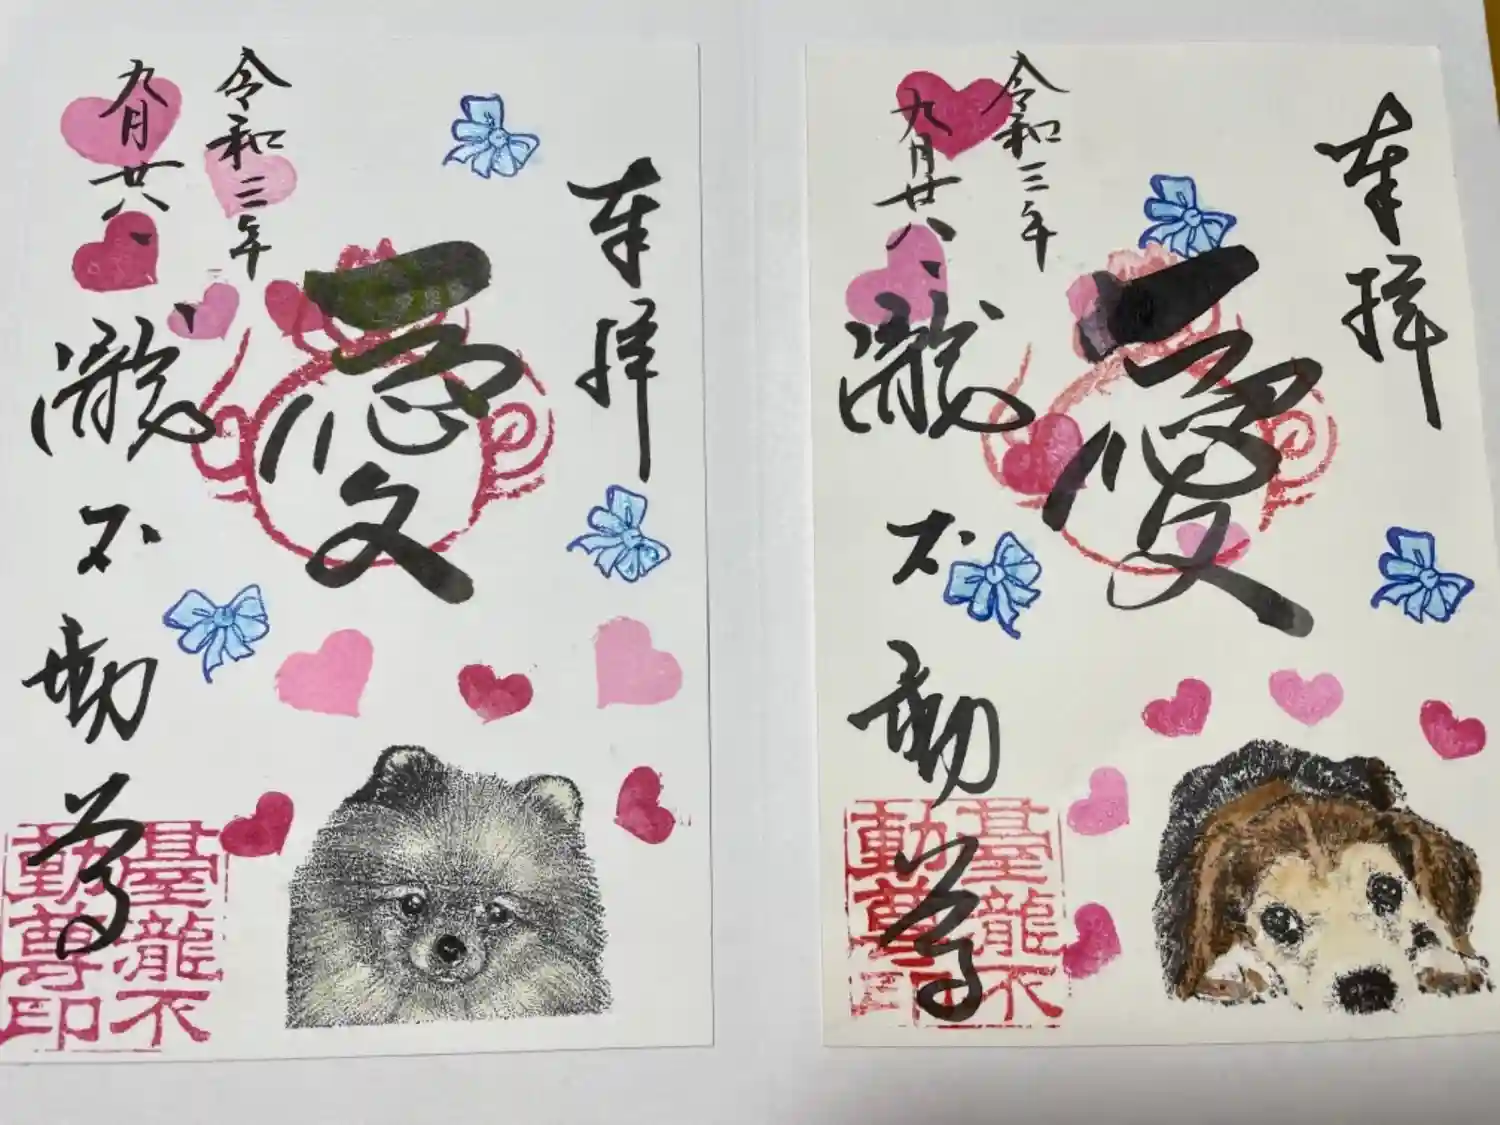 奉拝
愛
令和三年
九月廿八日
瀧不動尊
臺瀧不
動尊印
奉拝
愛
令和三年
九月廿八日
瀧不動尊
臺瀧不
動尊印